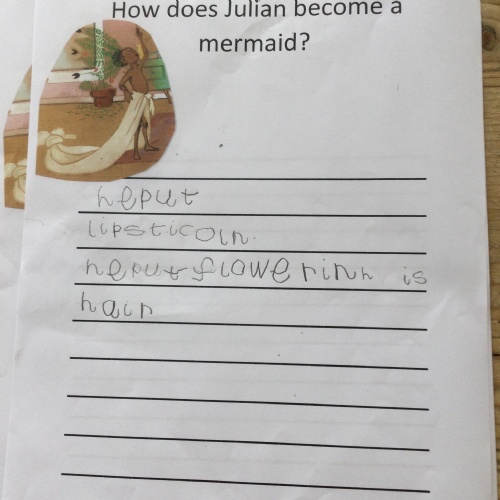 How does Julian become a
mermaid?
heput
lipsticoin.
heputflowerinh is
hair